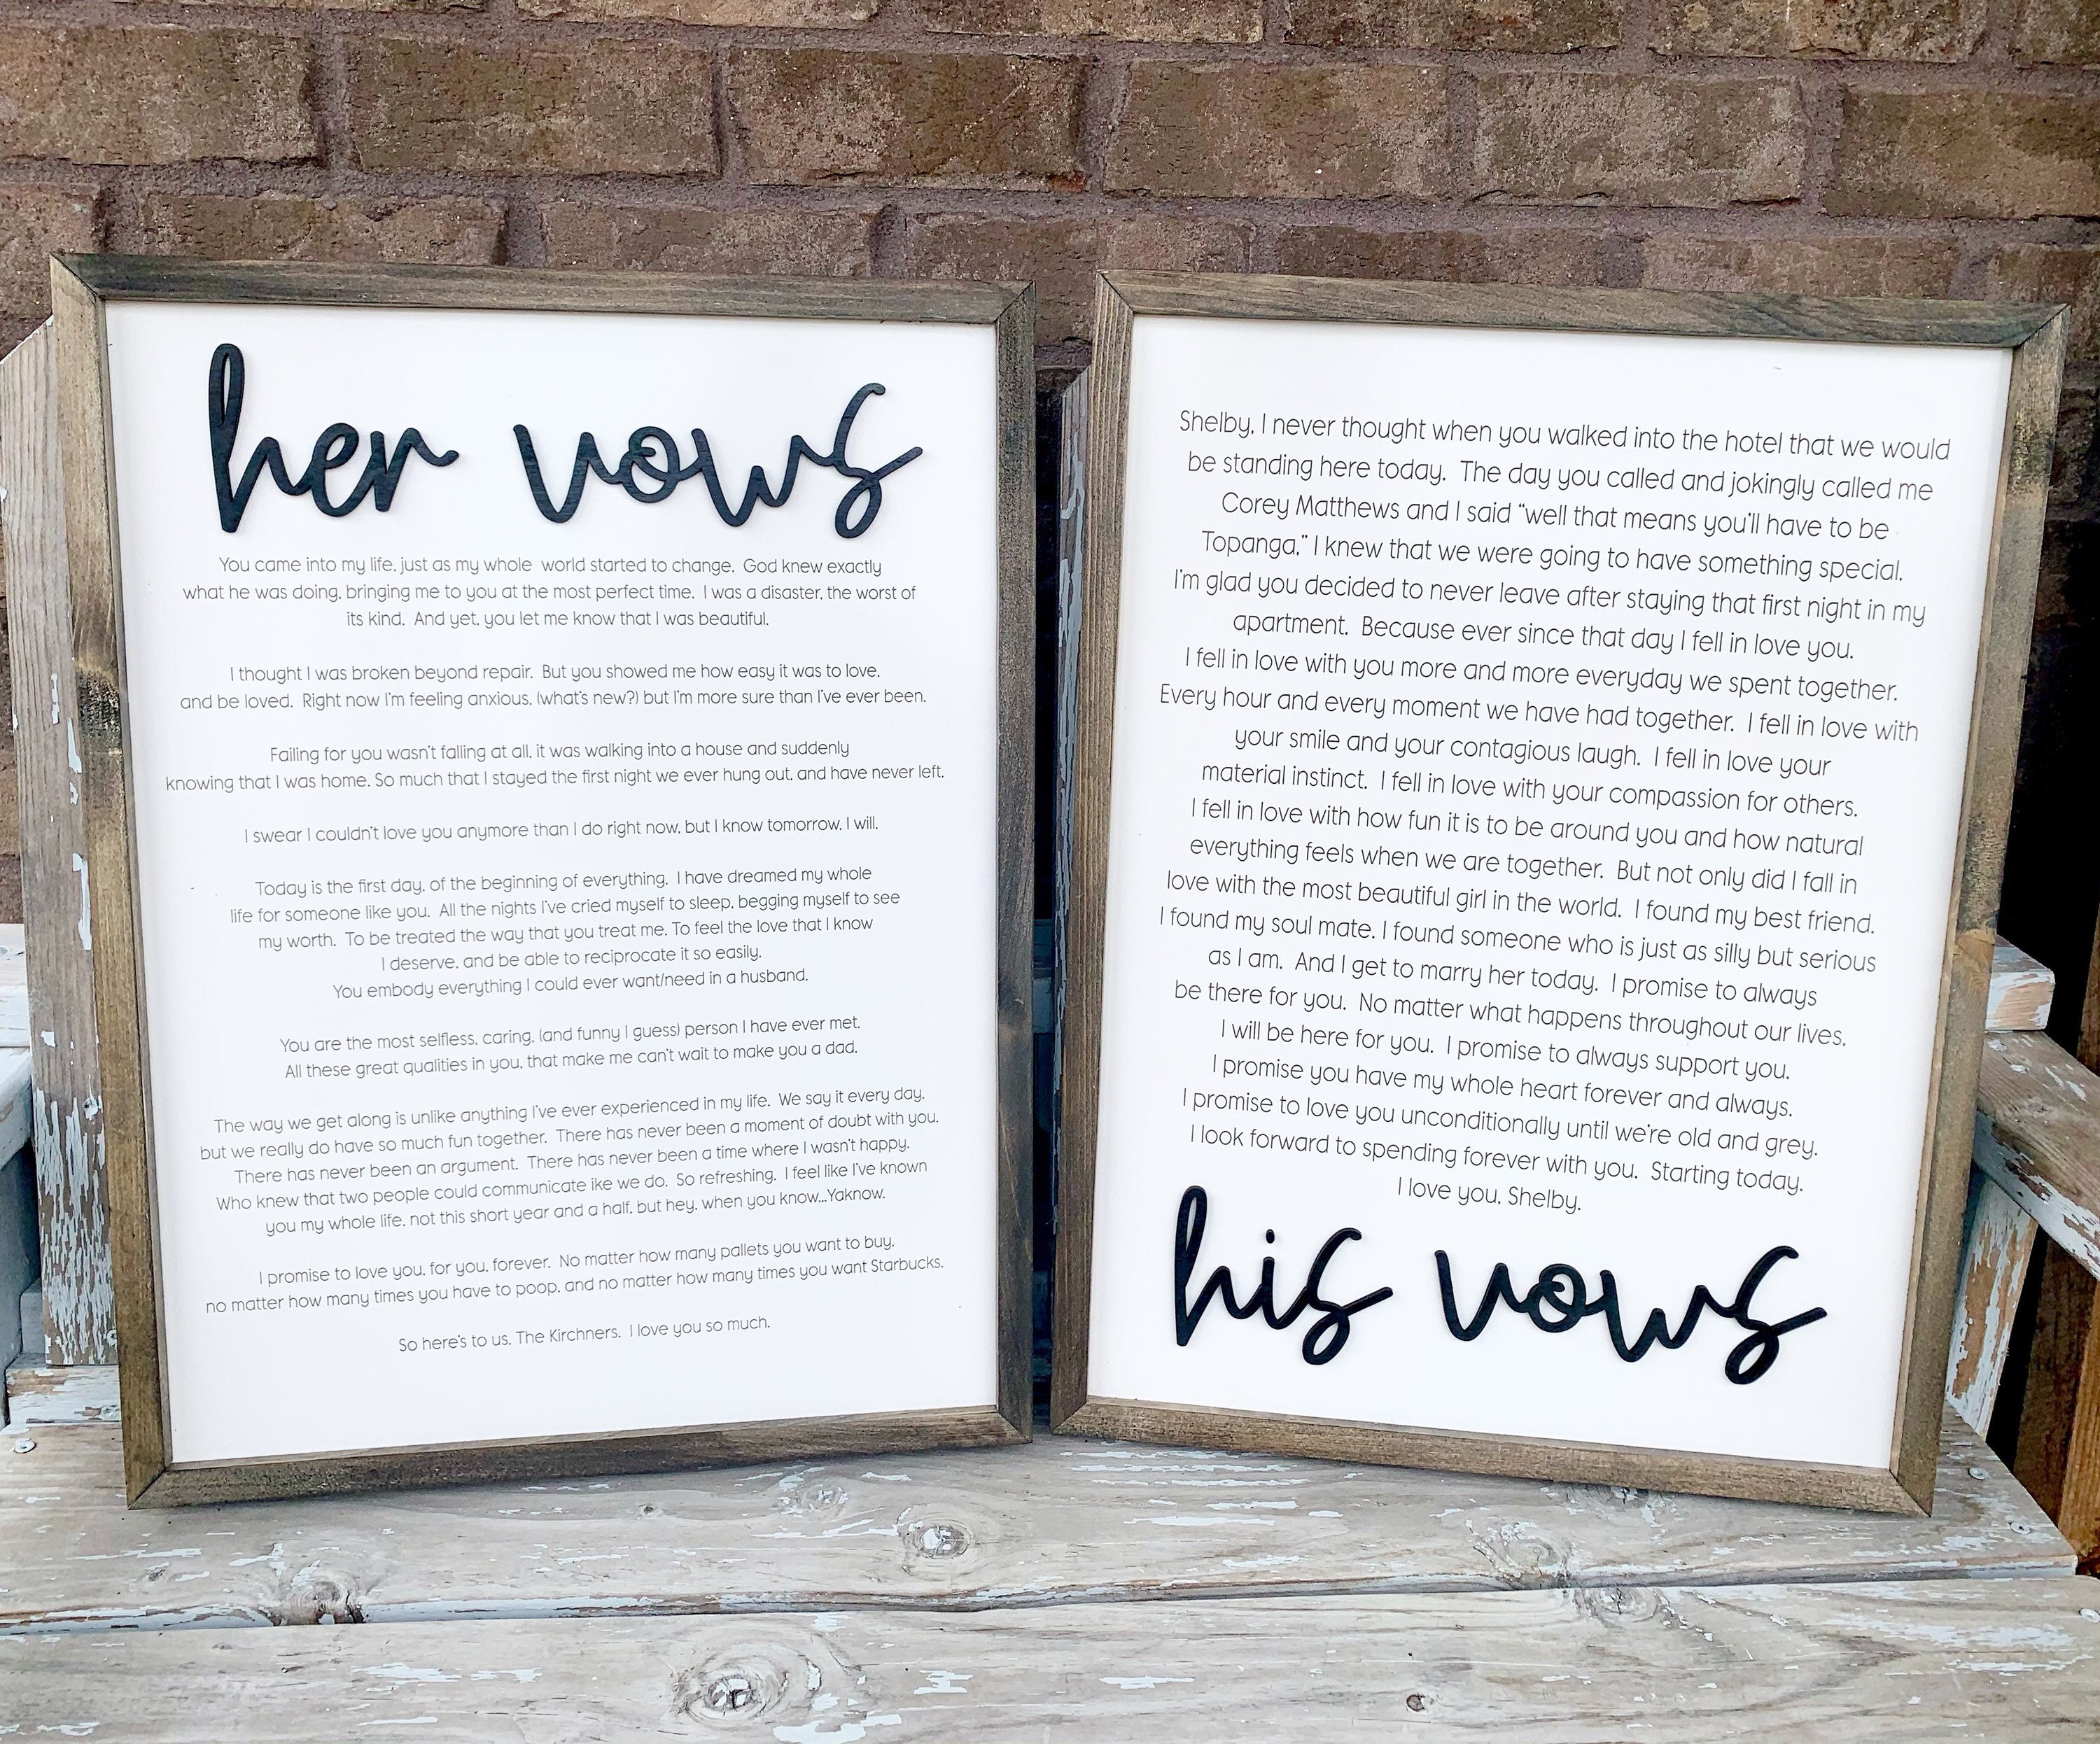 her vows
You came into my life, just as my whole world started to change. God knew exactly
what he was doing, bringing me to you at the most perfect time. I was a disaster, the worst of
its kind. And yet, you let me know that I was beautiful.
I thought I was broken beyond repair. But you showed me how easy it was to love,
and be loved. Right now I'm feeling anxious, (what's new?) but I'm more sure than I've ever been.
Failing for you wasn't falling at all, it was walking into a house and suddenly
knowing that I was home. So much that I stayed the first night we ever hung out, and have never left.
I swear I couldn't love you anymore than I do right now, but I know tomorrow, I will.
Today is the first day, of the beginning of everything. I have dreamed my whole
life for someone like you. All the nights I've cried myself to sleep, begging myself to see
my worth. To be treated the way that you treat me. To feel the love that I know
I deserve, and be able to reciprocate it so easily.
You embody everything I could ever want/need in a husband.
You are the most selfless, caring, (and funny I guess) person I have ever met.
All these great qualities in you, that make me can't wait to make you a dad.
The way we get along is unlike anything I've ever experienced in my life. We say it every day,
but we really do have so much fun together. There has never been a moment of doubt with you.
There has never been an argument. There has never been a time where I wasn't happy.
Who knew that two people could communicate ike we do. So refreshing. I feel like I've known
you my whole life, not this short year and a half, but hey, when you know...Yaknow.
I promise to love you, for you, forever. No matter how many pallets you want to buy,
no matter how many times you have to poop, and no matter how many times you want Starbucks.
So here's to us, The Kirchners. I love you so much.
Shelby, I never thought when you walked into the hotel that we would
be standing here today. The day you called and jokingly called me
Corey Matthews and I said "well that means you'll have to be
Topanga," I knew that we were going to have something special.
I'm glad you decided to never leave after staying that first night in my
apartment. Because ever since that day I fell in love you.
I fell in love with you more and more everyday we spent together.
Every hour and every moment we have had together. I fell in love with
your smile and your contagious laugh. I fell in love your
material instinct. I fell in love with your compassion for others.
I fell in love with how fun it is to be around you and how natural
everything feels when we are together. But not only did I fall in
love with the most beautiful girl in the world. I found my best friend.
I found my soul mate. I found someone who is just as silly but serious
as I am. And I get to marry her today. I promise to always
be there for you. No matter what happens throughout our lives,
I will be here for you. I promise to always support you.
I promise you have my whole heart forever and always.
I promise to love you unconditionally until we're old and grey.
I look forward to spending forever with you. Starting today.
I love you, Shelby.
his vows